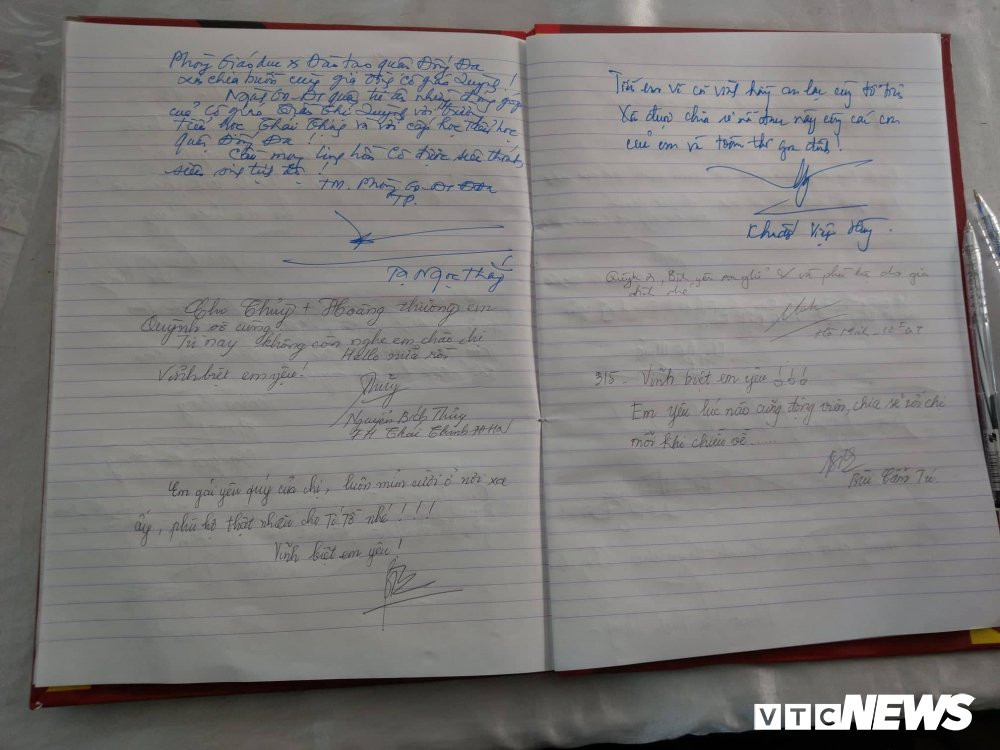 Phòng Giáo dục & Đào tạo quận Đống Đa
xin chia buồn cùng gia đình cô giáo Quỳnh!
Ngành GD-ĐT quận tri ân những đóng góp
của cô giáo Trần Thị Quỳnh với trường
Tiểu học Thái Thịnh và với cấp học Tiểu học
quận Đống Đa!
Cầu mong linh hồn Cô được siêu thoát
TM. Phòng GD-ĐT Đống Đa
TP.
Tạ Ngọc Thắng
Chị Thủy + Hoàng thương em
Quỳnh vô cùng
Từ nay không còn nghe em chào chị
Hello nữa rồi
Vĩnh biệt em yêu!
Thủy
Nguyễn Bích Thủy
TH Thái Thịnh
Em gái yêu quý của chị, luôn mỉm cười ở nơi xa
ấy, phù hộ thật nhiều cho Tí Tồ nhé!!!!
Vĩnh biệt em yêu!
Tiễn em về cõi vĩnh hằng an lạc cùng tổ tiên
Xin được chia sẻ nỗi đau này cùng các con
của em và toàn thể gia đình!
Khuất Việt Hùng.
phù hộ cho gia
đình nhé
315. Vĩnh biệt em yêu !!!
Em yêu lúc nào cũng động viên, chia sẻ với chị
mỗi khi chiều về......
VTC NEWS